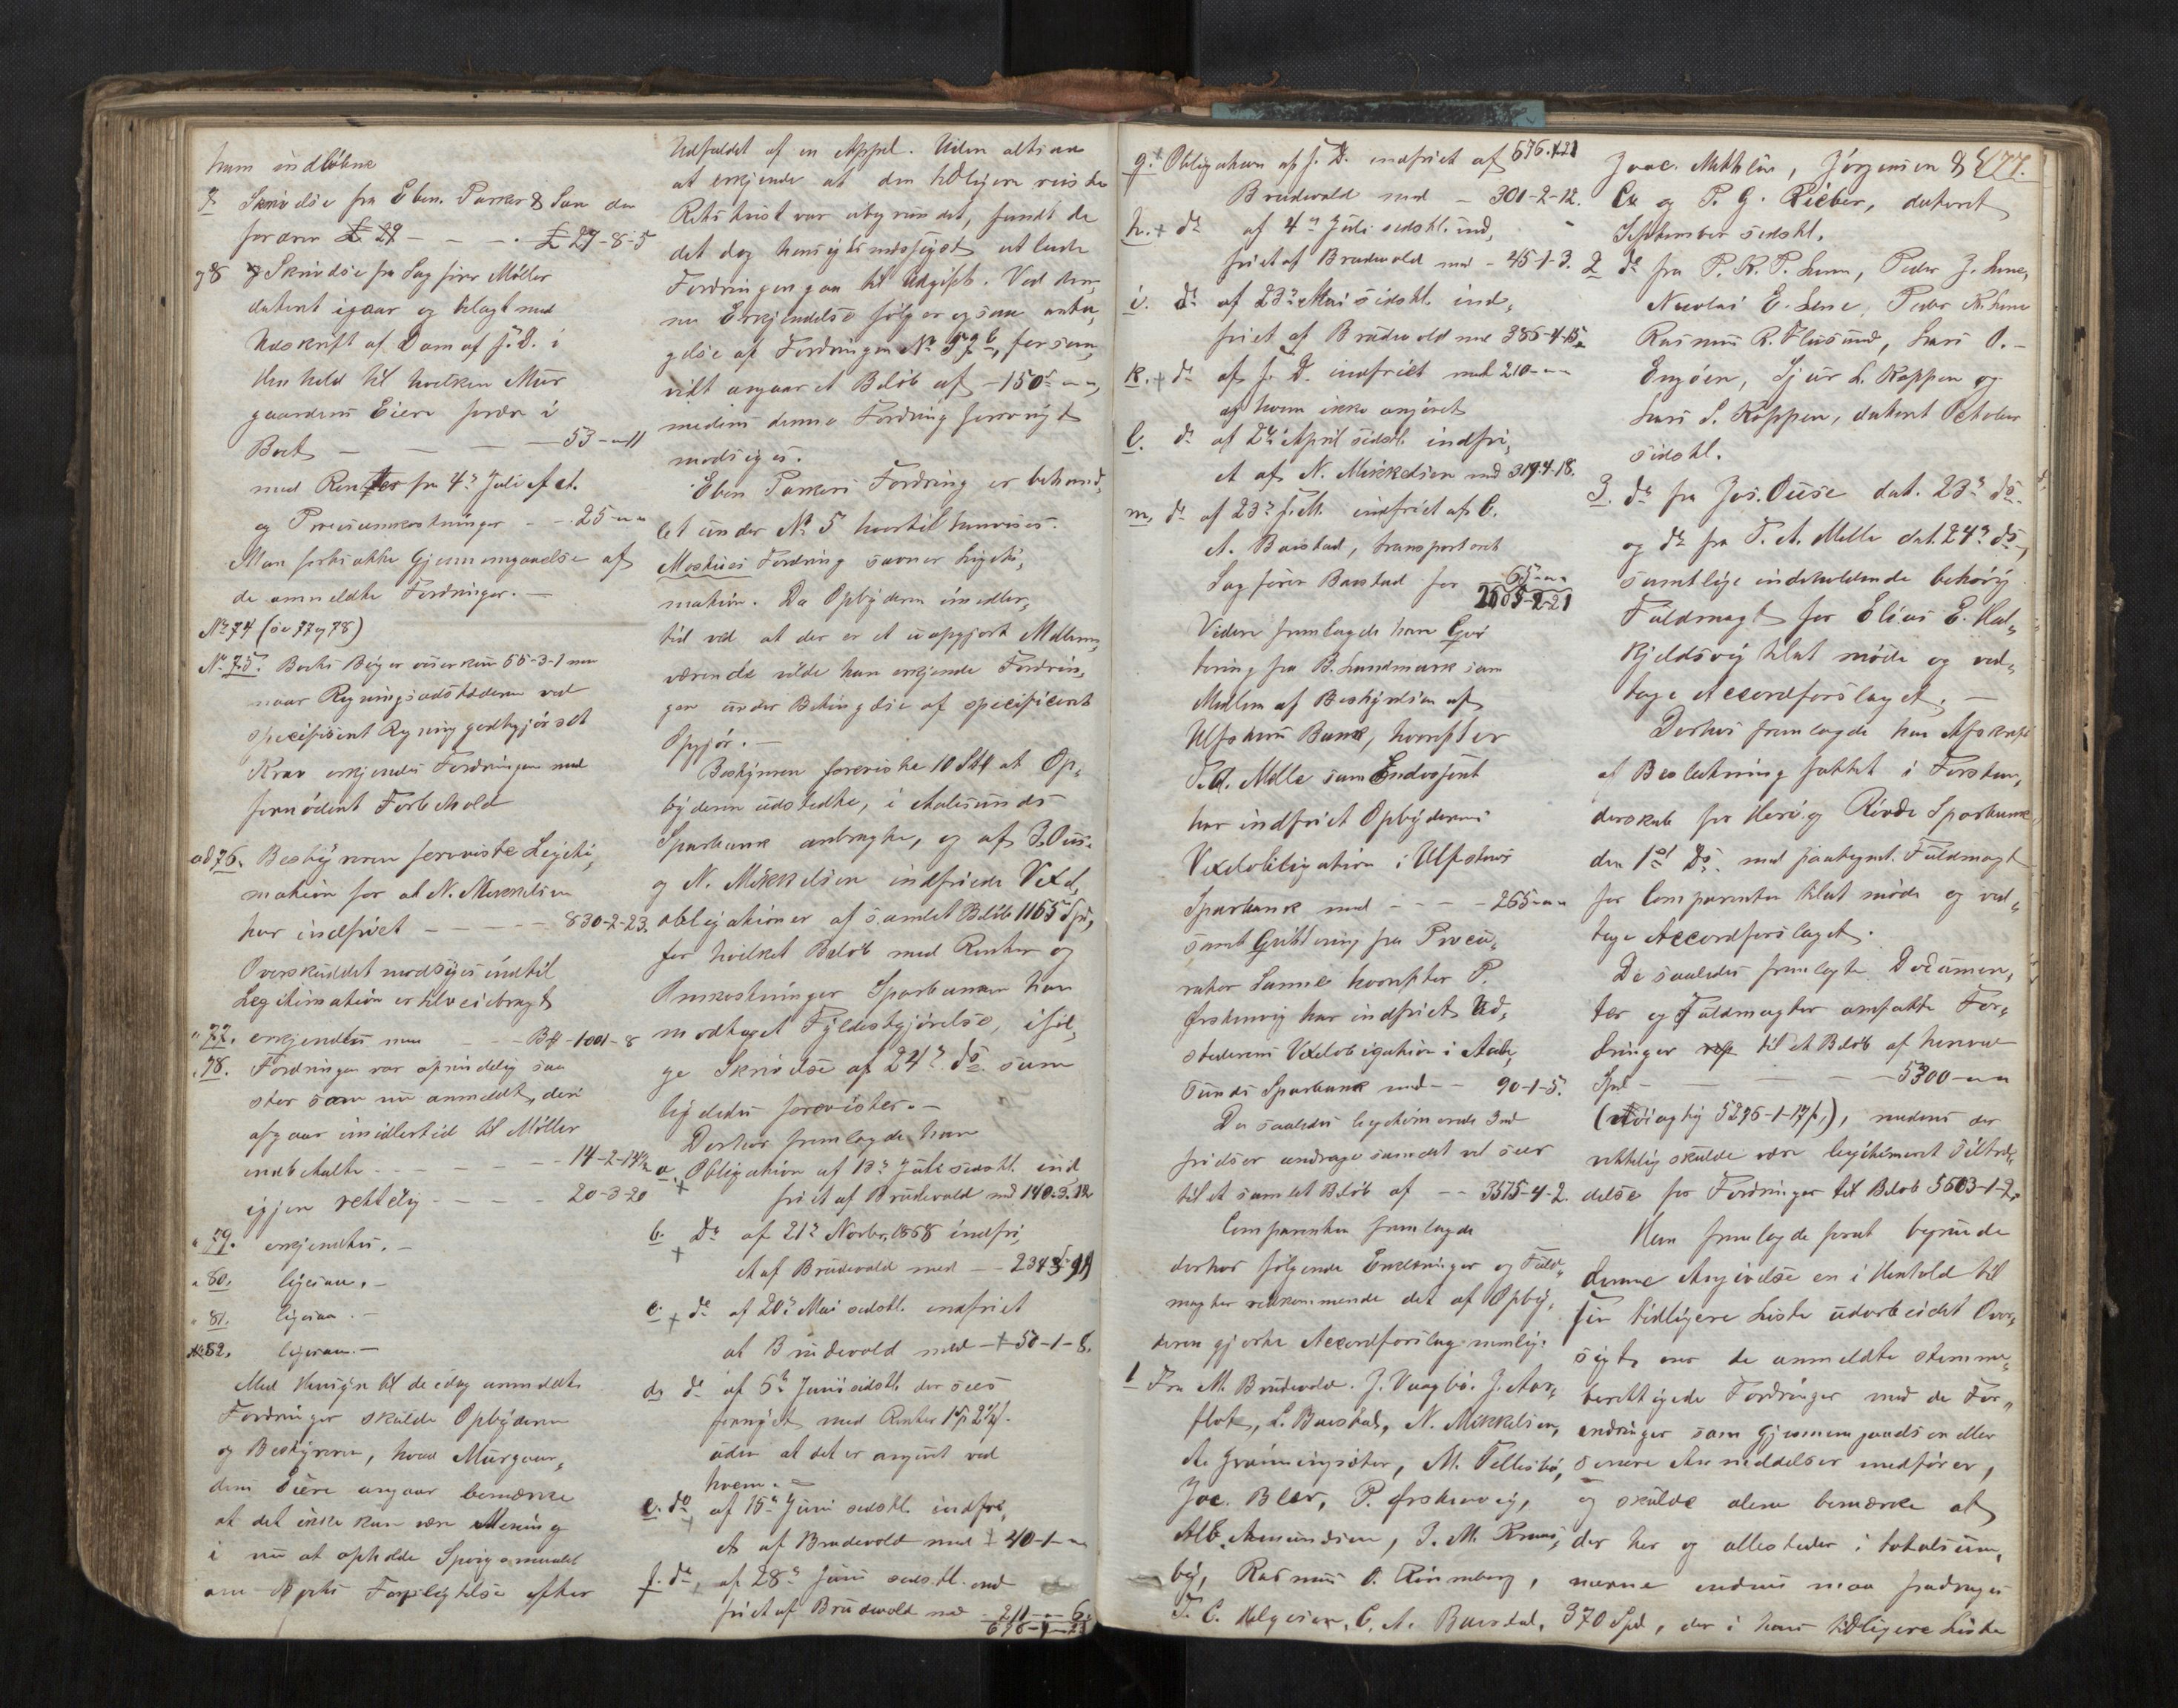 ham indløbne
7 Skrivelse fra Eben. Parker & Søn der
fordrer £ 29 - - - . £ 29-8-5
og 8 Skrivelse fra Sagfører Møller
dateret igaar og bilagt med
Udskrift af Dom af f. D. i
Henhold til hvilken Mur
gaardens Eiere fordre i
Boet — — — — 53-"-11
med Renter fra 4de Juli f. A.
og Procesomkostninger - - 25-"-"
Man foretog Gjennemgaaelse af
de anmeldte Fordringer. —
No 74 (se 77 og 78)
No 75. Boets Bøger udviser kun 55-3-1 men
naar Regningsudstederen ved
specificeret Regning godtgjør sit
Krav erkjendes Fordringen med
fornødent Forbehold
ad 76. Bestyreren foreviste Legiti,
mation for at N. Mikkelsen
har indfriet - - - - - 830-2-23.
Overskuddet modsiges indtil
Legitimation er tilveiebragt
" 77. erkjendtes med - - - 1001-8
" 78. Fordringen var oprindelig saa
stor som nu anmeldt, deri
afgaar imidlertid til Møller
indbetalte - - - - - - 14-2-14½
igjen rettelig - - - - 20-3-20
" 79. erkjendtes. —
" 80. ligesaa. —
" 81. ligesaa. —
" 82. ligesaa. —
Med Hensyn til de idag anmeldte
Fordringer skulde Opbyderen
og Bestyreren, hvad Murgaar,
dens Eiere angaar bemærke
at det ikke kan være Mening
i nu at opholde Spørgsmaalet
om Boets Forpligtelse efter
Udfaldet af en Appel. Uden altsaa
at erkjende at den tidligere reiste
Retstvist var ubegrundet, fandt de
det dog hensigtsmæssigst at lade
Fordringen gaa til Udgift. Ved den,
ne Erkjendelse følger ogsaa anta,
gelse af Fordringen No 57 b, forsaa,
vidt angaar et Beløb af - 150 - " - ",
medens denne Fordring forøvrigt
modsiges.
Eben Parkers Fordring er behand,
let under No 5 hvortil henvises.
Mostues Fordring savner Legiti,
mation. Da Opbyderen imidler,
tid ved at der er et uopgjort Mellem,
værende vilde han erkjende Fordrin,
gen under Betingelse af specificeret
Opgjør. —
Bestyreren foreviste 10 Stk at Op,
byderen udstedte, i Aalesunds
Sparebank anbragte, og af J. Ouse
og N. Mikkelsen indfriede Vexel,
obligationer af samlet Beløb 1165 Spd,
for hvilket Beløb med Renter og
Omkostninger Sparebanken har
modtaget Fyldestgjørelse, iføl,
ge Skrivelse af 24de ds. som
ligeledes forevistes. —
Derhos fremlagde han
a. Obligation af 13de Juli sidstl. ind
friet af Brudevold med 140-3-12
b. Do af 21de Novbr. 1868 indfri,
et af Brudevold med - - 234-3-9
c. do af 20de Mai sidstl. indfriet
at Brudevold med - 50-1-8.
d. do af 5te Juni sidstl. der sees
fornyet med Renter 1 Sp 2¼ f.
uden at det er angivet ved
hvem. —
e. do af 15de Juni sidstl. indfri,
et af Brudevold med 40-1-"
f. do, af 28de Juni sidstl. ind
friet af Brudevold med - 211-"-6.
676-"-21
g. Obligation af f. D. indfriet af 676-"-21
Brudevold med - 301-2-12.
h. do af 4de Juli sidstl. ind,
friet af Brudevold med - 45-1-3.
i. do af 23de Mai sidstl. ind,
friet af Brudevold med 385-4-15.
k. do af f. D. indfriet med 210-"-"
af hvem ikke angivet
l. do af 2den April sidstl. indfri,
et af N. Mikkelsen med 319-4-18.
m. do af 23de f. M. indfriet af C.
A. Baustad, transporteret
Sagfører Baustad for 65-"-"
2005-2-21
Videre fremlagde han Qvit
tering fra B. Landmark som
Medlem af Bestyrelsen af
Ulfstens Bank, hvorefter
T. A. Melle som Endossent
har indfriet Opbyderens
Vexelobligation i Ulfstens
Sparebank med - - - 265-"-"
samt Qvittering fra Procu,
rator Lannes hvorefter P.
Ørstenvig har indfriet Ud,
stederens Vexelobligation i Aale,
sunds Sparebank med - - 90-1-5.
De saaledes legitimerede Ind
frielser andrage samlet vel seer
til et samlet Beløb af - - 3575-4-2.
Comparenten fremlagde
derhos følgende Erklæringer og Fuld,
magter vedkommende det af Opby,
deren gjorte Accordforslag nemlig:
1 Fra M. Brudevold. J. Vaagbø. J. Aar,
flot, L. Baustad, N. Mikkelsen,
A. Grønningsæter, M. Tellesbø,
Joe. Bler, P. Ørstenvig,
Alb. Amundsen, J. M. Kraas,
by, Rasmus O. Rønneberg,
T. C. Helgesen, C. A. Baustad,
477.
Joac. Mekklun, Jørgensen &
Co og P. G. Rieber, dateret
September sidstl.
2 do fra P. K. P. Lene, Peder J. Lene,
Nicolai E. Lene, Peder K. Lene
Rasmus R. Flusund, Lars O. -
Engøen, Sjur L. Koppen og
Lars S. Koppen, dateret October
sidstl.
3. do fra Jos. Ouse dat. 23de ds.
og do fra T. A. Melle dat. 24de ds,
samtlige indeholdende behørig
Fuldmagt for Elias E. Hal,
kjeldsvig til at møde og ved,
tage Accordforslaget; —
Derhos fremlagde han Afskrift
af Beslutning fattet i Forstan,
derskab for Herø og Røvde Sparebank
den 1ste ds. med paategnet Fuldmagt
for Comparenten til at møde og ved,
tage Accordforslaget.
De saaledes fremlagte Documen,
ter og Fuldmagter omfatte For,
dringer til et Beløb af henved
Spd — — — 5300-"-"
(Nøiagtig 5296-1-17/.), medens der
rettelig skulde være legitimeret Tiltræ,
delse for Fordringer til Beløb 5603-1-2.
Han fremlagde forat begrunde
denne Angivelse en i Henhold til
sin tidligere Liste udarbeidet Over,
sigt over de anmeldte stemme,
berettigede Fordringer med de For,
andringer som Gjennemgaaelsen eller
senere Anmeldelser medfører,
og skulde alene bemærke at
der her og allesteder i totalsum,
merne endnu maa fradrages
370 Spd, der i hans tidligere Liste